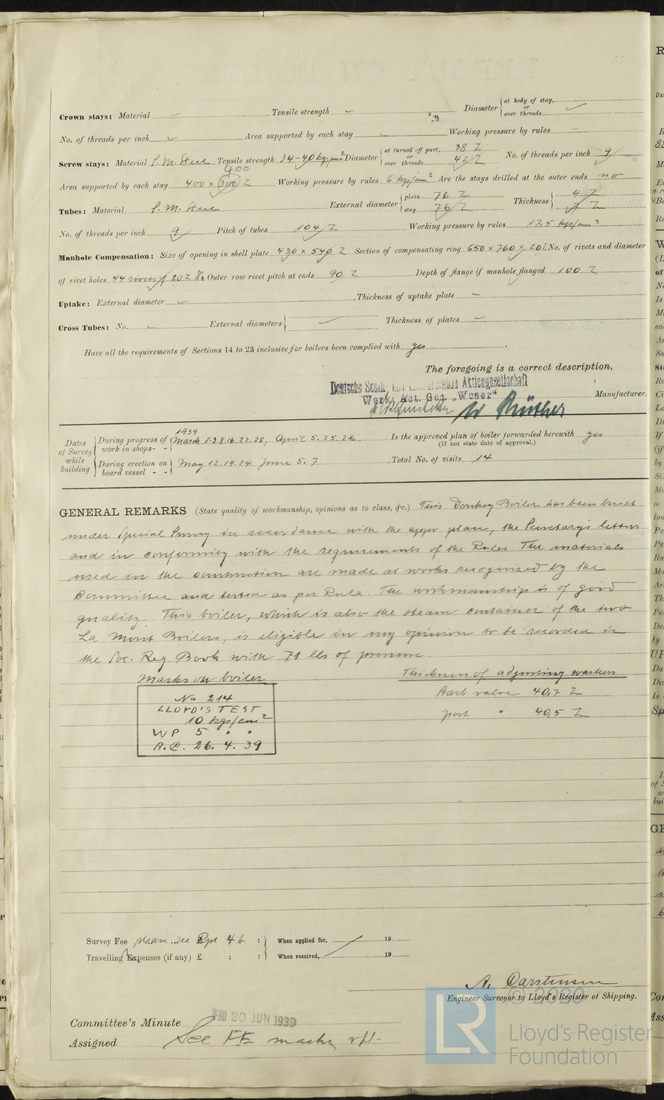 Crown stays: Material Tensile strength Diameter { at body of stay, or over threads
No. of threads per inch Area supported by each stay Working pressure by rules
Screw stays: Material S.M. Steel Tensile strength 34-40 kg/mm² Diameter { at turned off part, or over threads 38 42 No. of threads per inch 9
400
Area supported by each stay 400 × Working pressure by rules 6 kgs/cm² Are the stays drilled at the outer ends no
Tubes: Material S.M. Steel External diameter { plain 76 stay 76 Thickness {
No. of threads per inch 9 Pitch of tubes 104 Working pressure by rules 17,5 kgs/cm²
Manhole Compensation: Size of opening in shell plate 430 × 540 Section of compensating ring 650 × 760 × 20 No. of rivets and diameter
of rivet holes 44 rivets Outer row rivet pitch at ends 90 Depth of flange if manhole flanged 100
Uptake: External diameter Thickness of uptake plate
Cross Tubes: No. External diameters { Thickness of plates
Have all the requirements of Sections 14 to 23 inclusive for boilers been complied with yes
The foregoing is a correct description,
Deutsche Schiff- und Maschinenbau Aktiengesellschaft
Werk Act. Ges. „Weser"
Manufacturer.
Dates of Survey while building
1939
During progress of work in shops - - March 1.2.8.16.22.28, April 5.25.26
During erection on board vessel - - May 12.19.24 June 5.7
Is the approved plan of boiler forwarded herewith yes
(If not state date of approval.)
Total No. of visits 14
GENERAL REMARKS (State quality of workmanship, opinions as to class, &c.) This Donkey Boiler has been built
under Special Survey in accordance with the appr. plan, the Secretary's letters
and in conformity with the requirements of the Rules The materials
used in the construction are made at works recognised by the
Committee and tested as per Rule. The workmanship is of good
quality. This boiler, which is also the steam container of the two
La Mont Boilers, is eligible in my opinion to be recorded in
the Soc. Reg. Book with 71 lbs of pressure.
Marks on boiler
No 214
LLOYD'S TEST
10 kgs/cm²
WP 5 " "
A.C. 26.4.39
Thickness of adjusting washers
valve 40,7
port " 40,5
Survey Fee
Travelling Expenses (if any) £ : :
When applied for, 19
When received, 19
A. Carstensen
Engineer Surveyor to Lloyd's Register of Shipping.
© 2020
Committee's Minute FRI 30 JUN 1939
Assigned See F.E. machy rpt.
LR
Lloyd's Register
Foundation